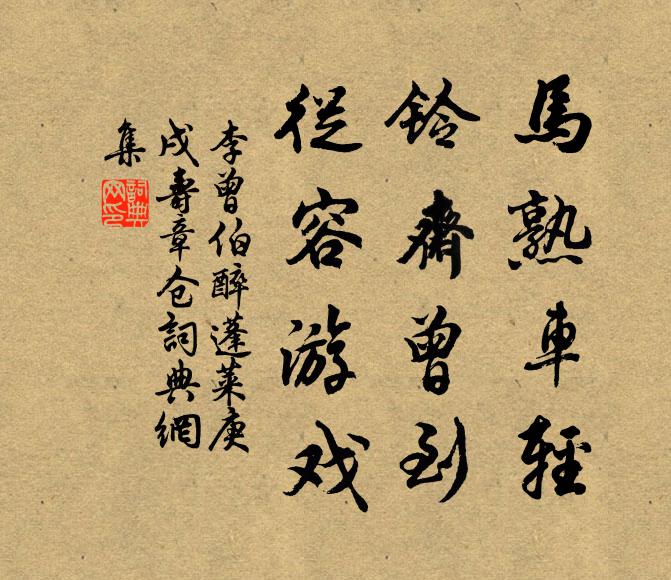 馬熟車輕
鈴齋曾到
從容游戏
李曾伯醉蓬萊庚
戌壽章仓詞典網
集
詞典
网印